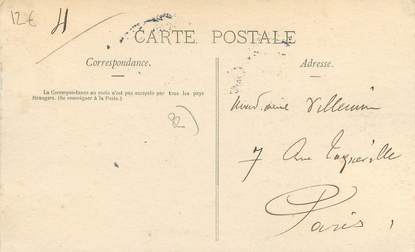 12€
4
CARTE POSTALE
Correspondance.
Adresse.
La Correspondance au recto n'est pas acceptée par tous les pays
étrangers. (Se renseigner à la Poste.)
82
Villemin
7 Rue
Paris